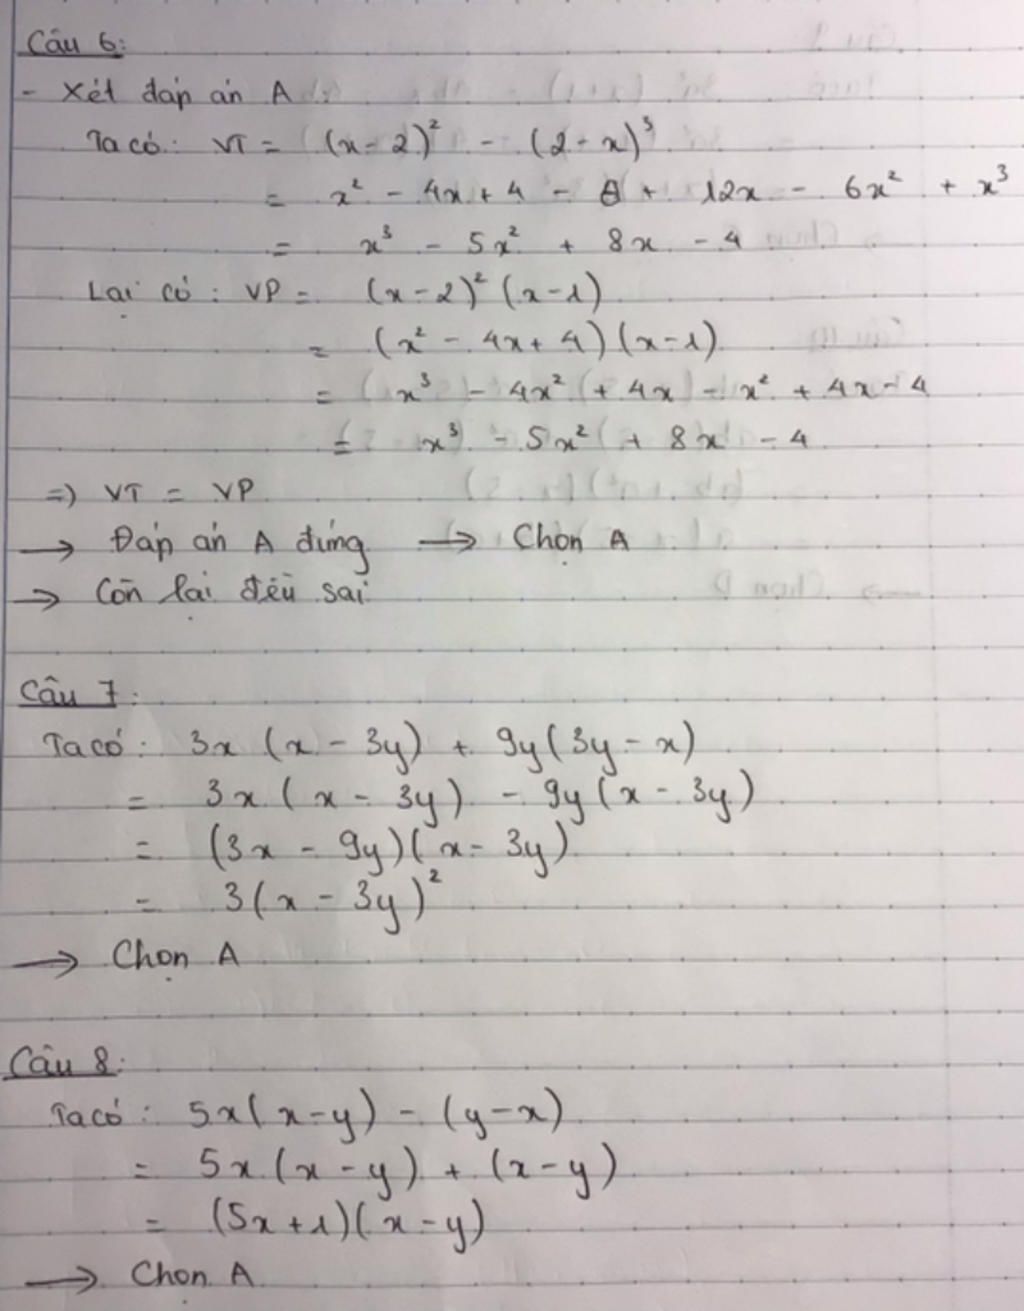 Câu 6:
- Xét đáp án A :
Ta có: VT = (x - 2)² - (2 - x)³
= x² - 4x + 4 - 8 + 12x - 6x² + x³
= x³ - 5x² + 8x - 4
Lại có : VP = (x - 2)² (x - 1)
= (x² - 4x + 4)(x - 1)
= x³ - 4x² + 4x - x² + 4x - 4
= x³ - 5x² + 8x - 4
=> VT = VP
→ Đáp án A đúng → Chọn A
→ Còn lại đều sai
Câu 7:
Ta có: 3x (x - 3y) + 9y(3y - x)
= 3x ( x - 3y) - 9y (x - 3y)
= (3x - 9y)(x - 3y)
= 3(x - 3y)²
→ Chọn A
Câu 8:
Ta có: 5x(x - y) - (y - x)
= 5x (x - y) + (x - y)
= (5x + 1)(x - y)
→ Chọn A